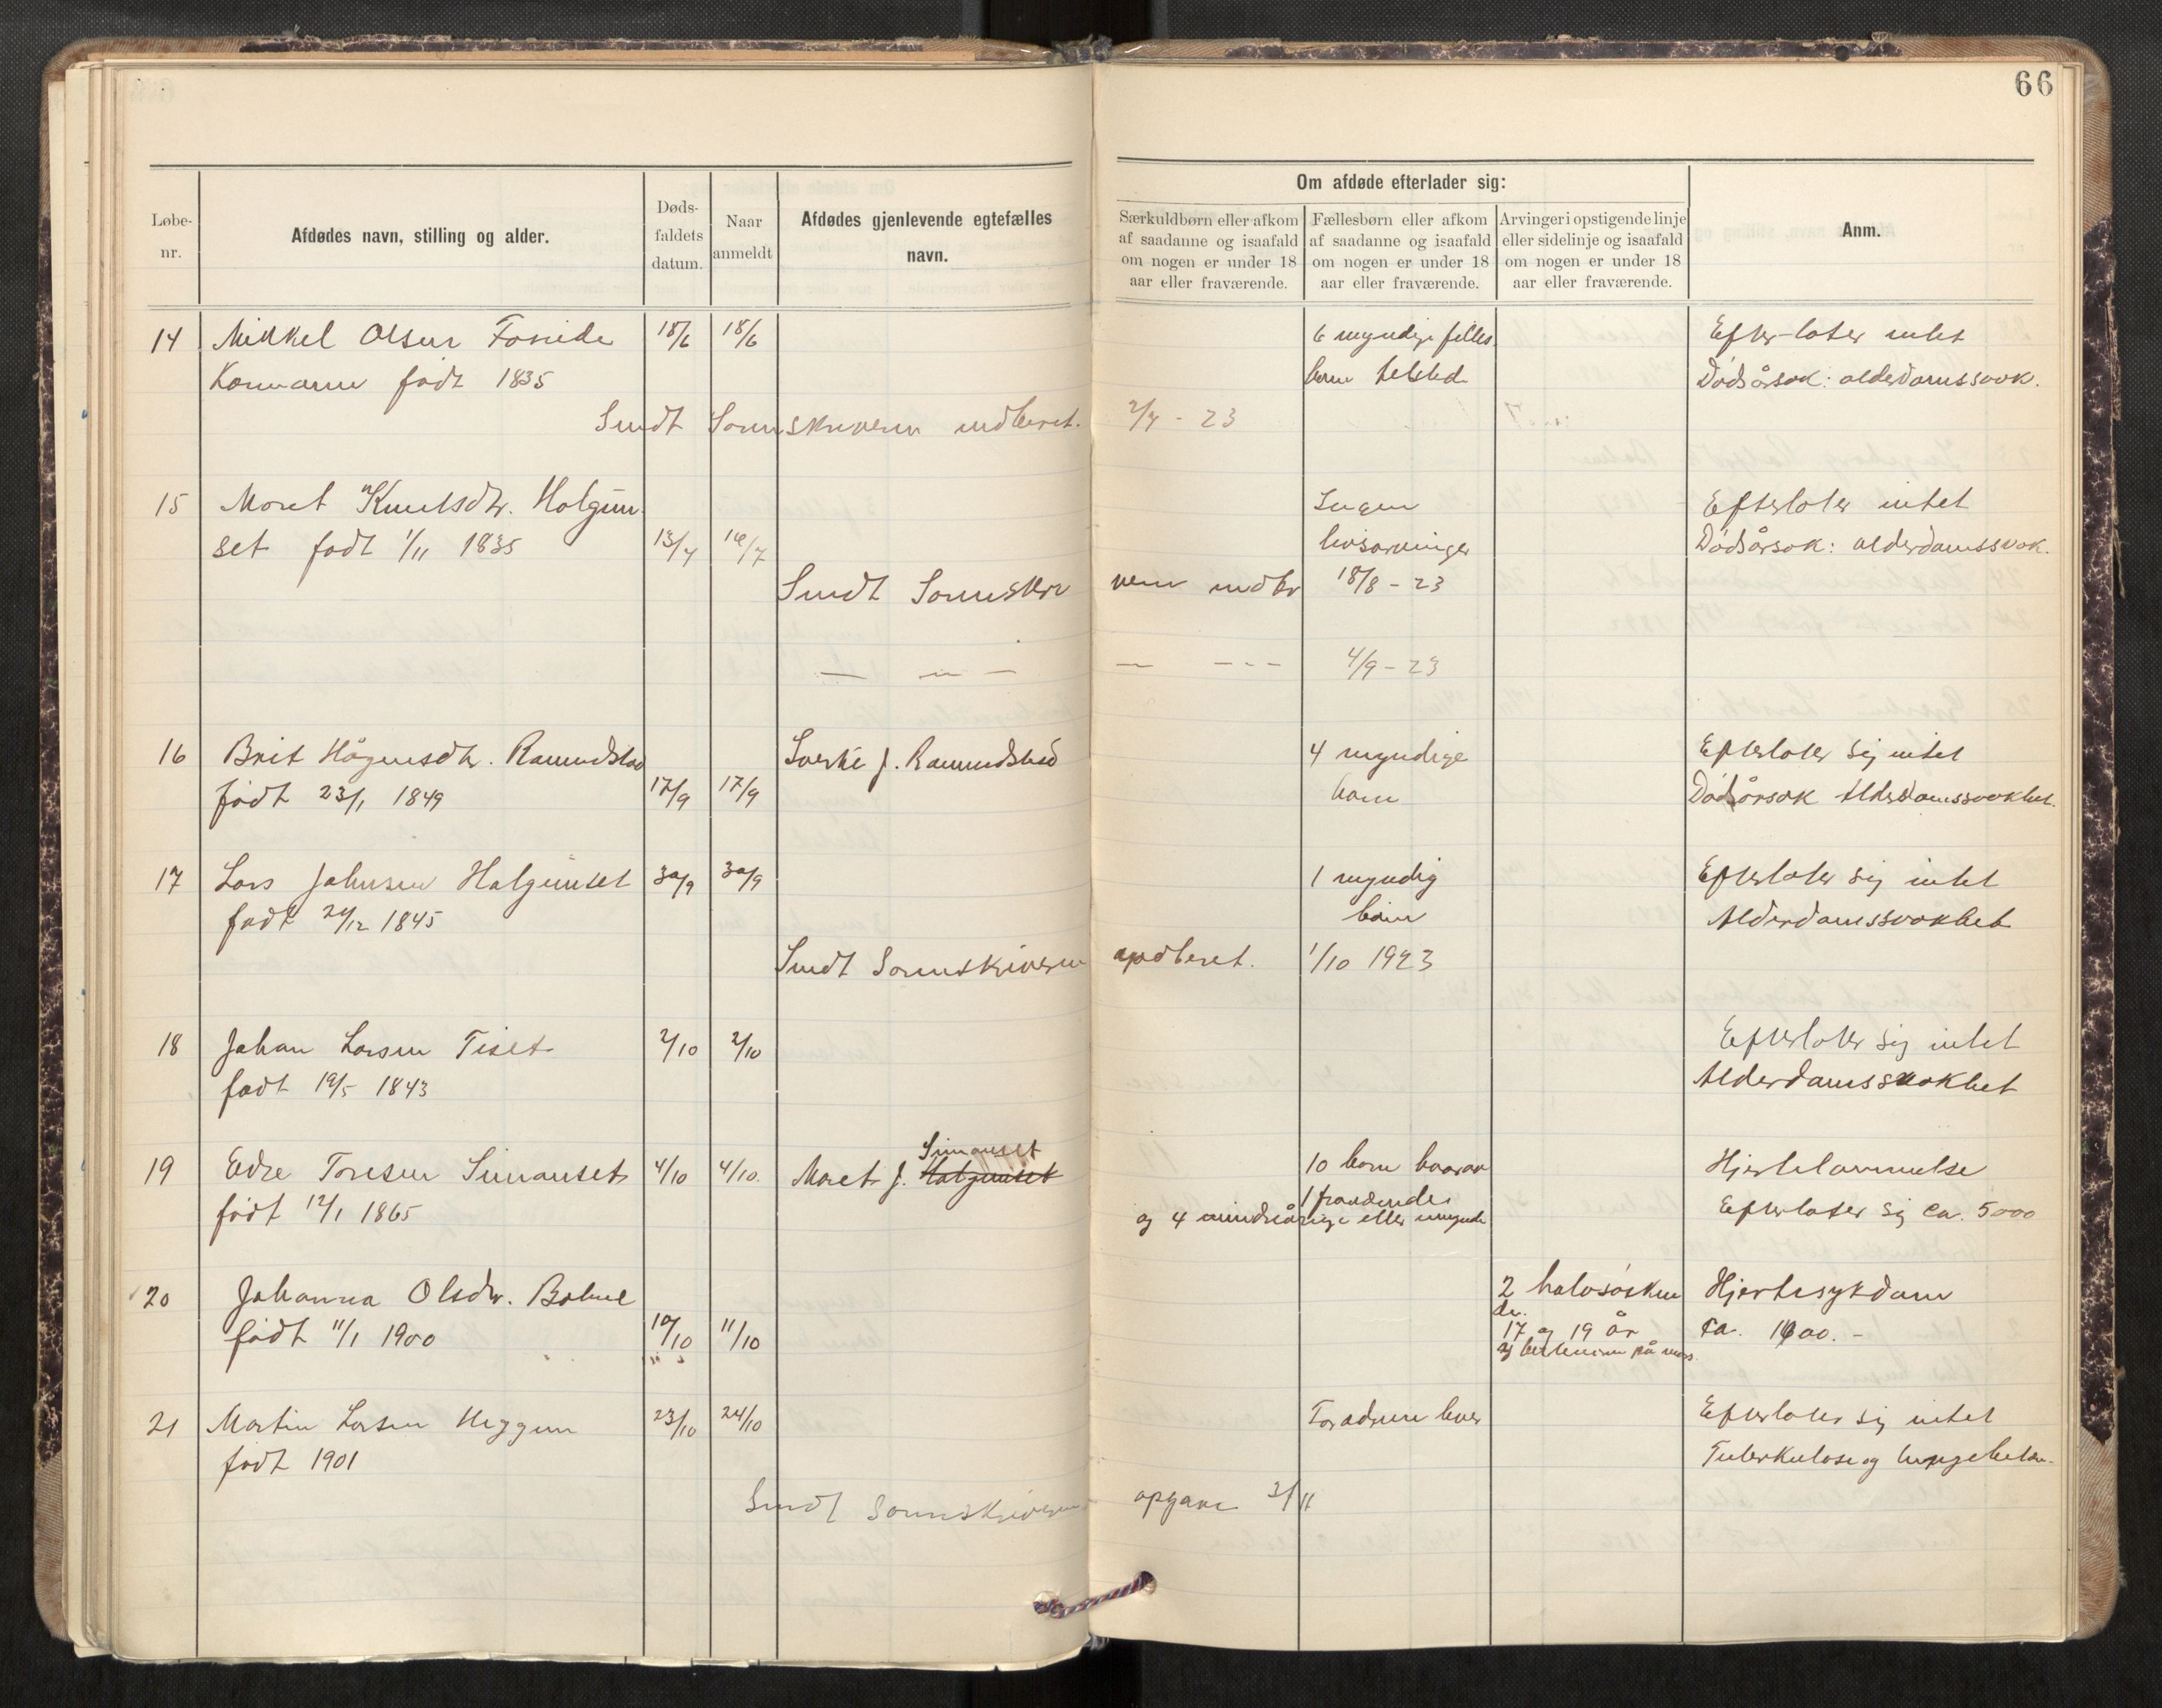 66
Løbe-
nr.
Afdødes navn, stilling og alder.
Døds-
faldets
datum.
Naar
anmeldt
Afdødes gjenlevende egtefælles
navn.
Om afdøde efterlader sig:
Særkuldbørn eller afkom
af saadanne og isaafald
om nogen er under 18
aar eller fraværende.
Fællesbørn eller afkom
af saadanne og isaafald
om nogen er under 18
aar eller fraværende.
Arvinger i opstigende linje
eller sidelinje og isaafald
om nogen er under 18
aar eller fraværende.
Anm.
14 Mikkel Olsen 18/6 18/6 6 myndige felles Efter-later intet
Kårmann født 1835 børn Dødsårsak: alderdomssvak.
Sendt Sorenskriveren indberet. 2/7 - 23
15 Maret Knutsdtr. Halgun- Ingen Efterlater intet
set født 1/11 1835 13/7 16/7 livsarvinger Dødsårsak: alderdomssvak.
Sendt Sorenskri veren indbr 18/8 - 23
— — — — - - - 4/9 - 23
16 Brit Hågensdtr. Ramundstad Sverke J. Ramundstad 4 myndige Efterlater sig intet
født 23/1 1849 17/9 17/9 barn Dødsårsak Alderdomssvakhet.
17 Lars Johnsen Halgunset 30/9 30/9 1 myndig Efterlater sig intet
født 24/12 1845 barn Alderdomssvakhet
Sendt Sorenskriveren indberet. 1/10 1923
18 Johan Larsen Tiset 2/10 2/10 Efterlater sig intet
født 19/5 1843 Alderdomssvakhet
Simonset
19 Edre Toresen Simonset 4/10 4/10. Maret J. Halgunset 10 barn hvorav Hjertelammelse
født 12/1 1865 1 fraværende Efterlater sig ca. 5000
og 4 mindreårige eller
20 Johanna Olsdtr. Bolme 2 halvsøsken Hjertesykdom
de.
født 11/1 1900 10/10 11/10 17 og 19 år ca. 1600. -
og på mors.
21 Martin Larsen Heggem 23/10 24/10 Foreldrene lever Efterlater sig intet
født 1901 Tuberkulose og
Sendt Sorenskriveren opgave 3/11